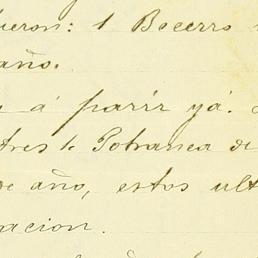 ueron: 1 Becerro
año.
á parir yá.
tres 1 Potranca de
de año, estos ult
acion.